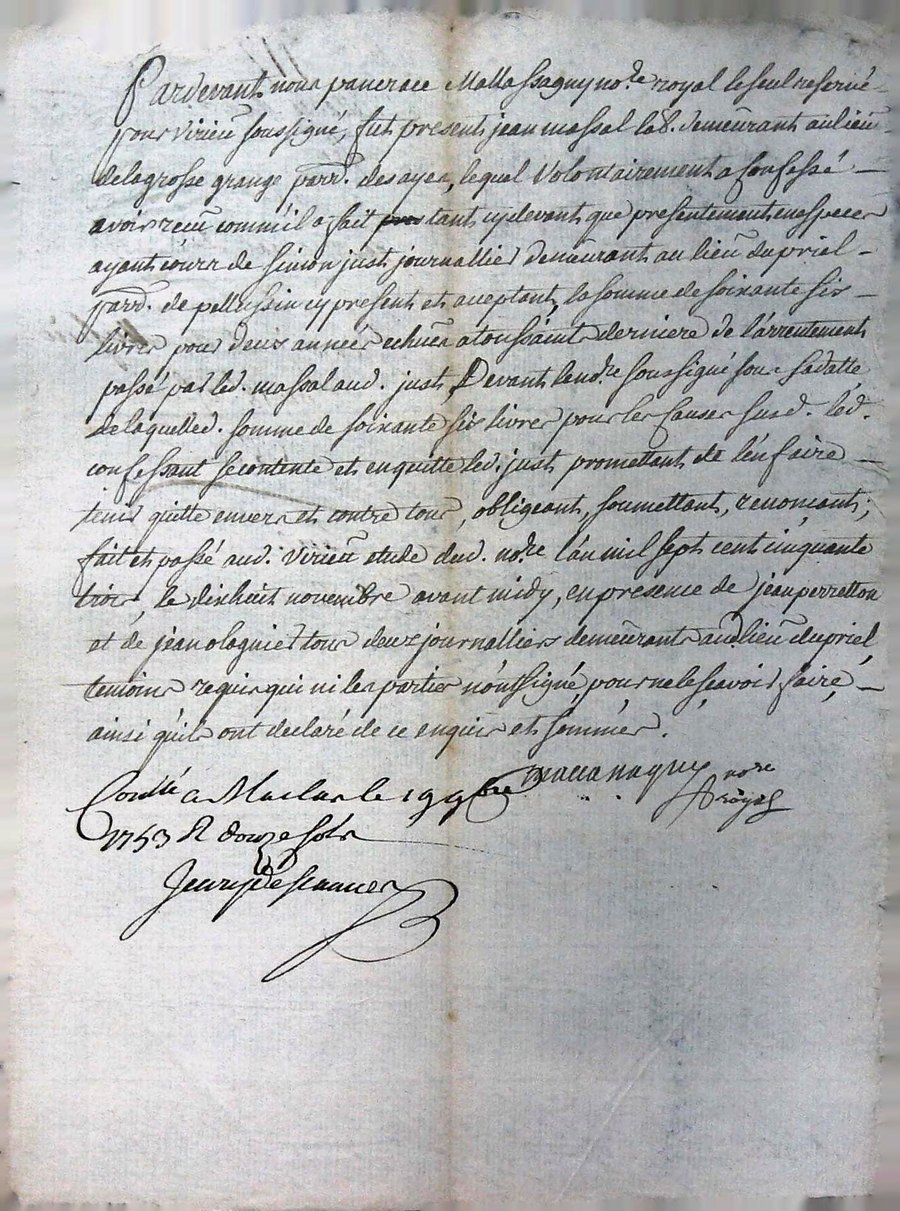 Pardevant nous pancrace Mallassagny no.re royal le seul reservé
pour virieu soussigné, fut present jean massal lab. demeurant au lieu
de la grosse grange parr. des ayes, lequel volontairement a confessé
avoir receu comm'il a fait tant cy devant que presentement en especes
ayant cours de simon just journallier demeurant au lieu du priel
parr. de pellussin cy present et aceptant, la somme de soixante six
livres pour deux années echues a toussaints derniere de l'arrentement
passé par led. massal aud. just Devant le no.re soussigné sous sa datte
de laquelled. somme de soixante six livres pour les causes susd. led.
confessant se contente et en quitte led. just promettant de l'en faire
tenir quitte envers et contre tous, obligeant, soumettant, renoncant;
fait et passé aud. virieu etude dud. no.re l'an mil sept cent cinquante
trois, le dixhuit novembre avant midy, en presence de jean perretton
et de jean olagnier tous deux journalliers demeurants aud. lieu du priel
temoins requis qui ni les parties n'ont signé pour ne le scavoir faire,
ainsi qu'ils ont declaré de ce enquis et sommés.
no.re
royal
Con.llé a Maclas le 19 9bre
1753 R douze sols